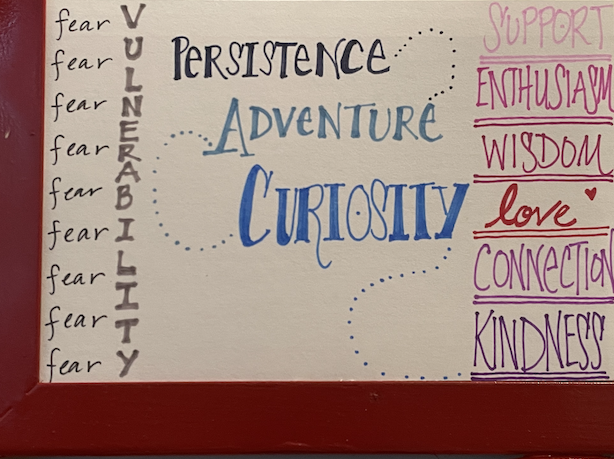 fear
fear
fear
fear
fear
fear
fear
fear
fear
VULNERABILITY
PERSISTENCE
ADVENTURE
CURIOSITY
SUPPORT
ENTHUSIASM
WISDOM
love
CONNECTION
KINDNESS